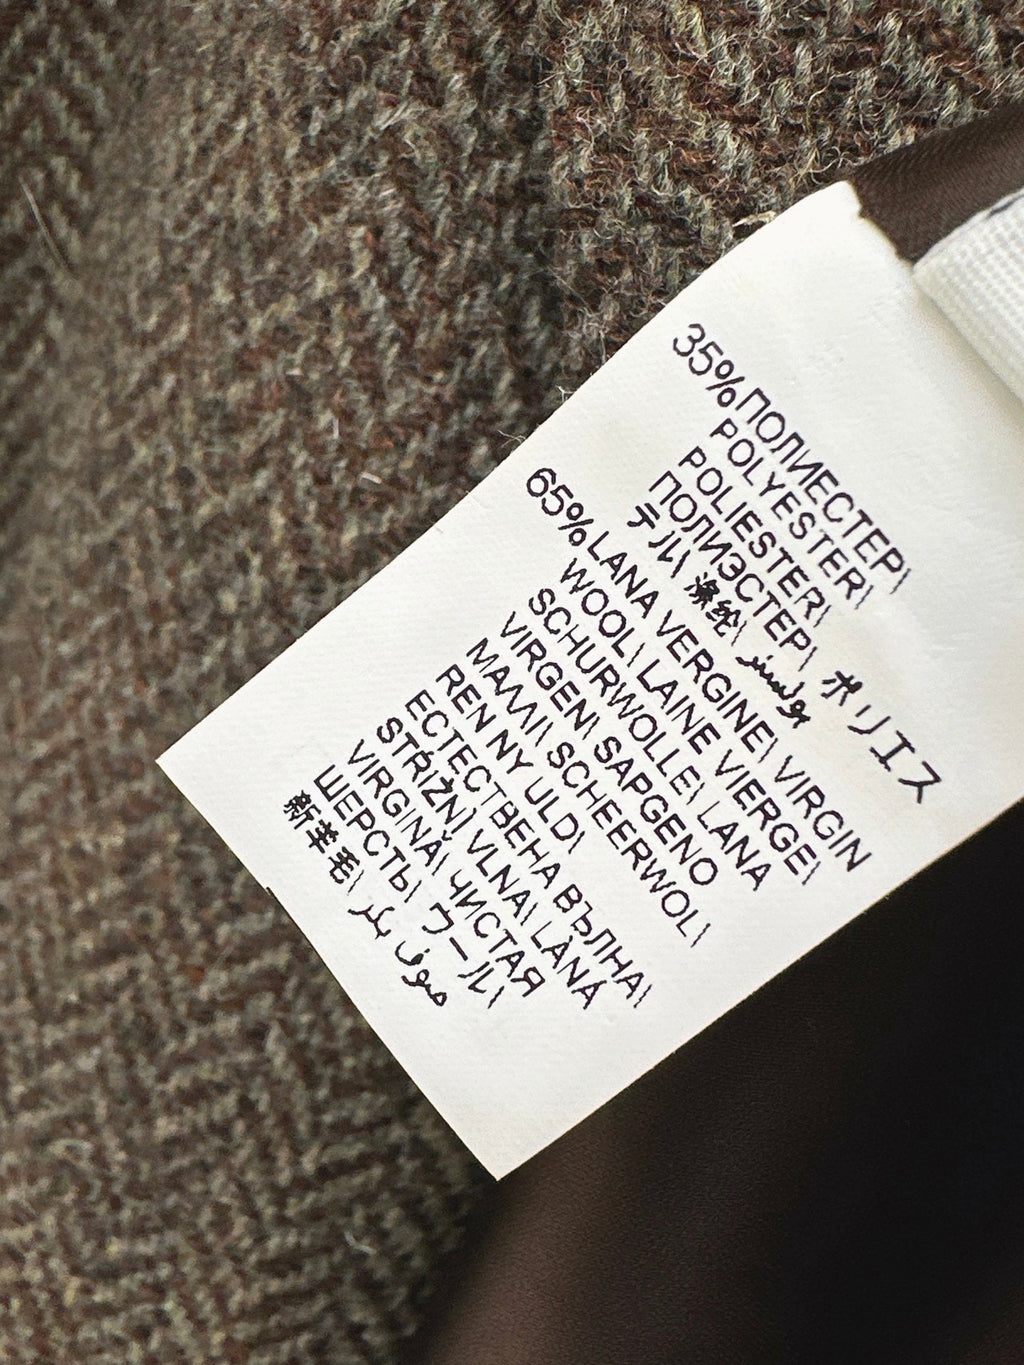 35% ПОЛИЕСТЕР\
POLYESTER\
POLIESTER\
ПОЛИЭСТЕР\ ポリエス
テル\ 涤纶\ بولستر
65% LANA VERGINE\ VIRGIN
WOOL\ LAINE VIERGE\
SCHURWOLLE\ LANA
VIRGEN\ SAPGENO
ΜΑΛΛΙ\ SCHEERWOL\
REN NY ULD\
ЕСТЕСТВЕНА ВЪЛНА\
STŘIŽNÌ VLNA\ LÀNA
VIRGINĂ\ ЧИСТАЯ
ШЕРСТЬ\ ウール\
新羊毛\ صوف بكر